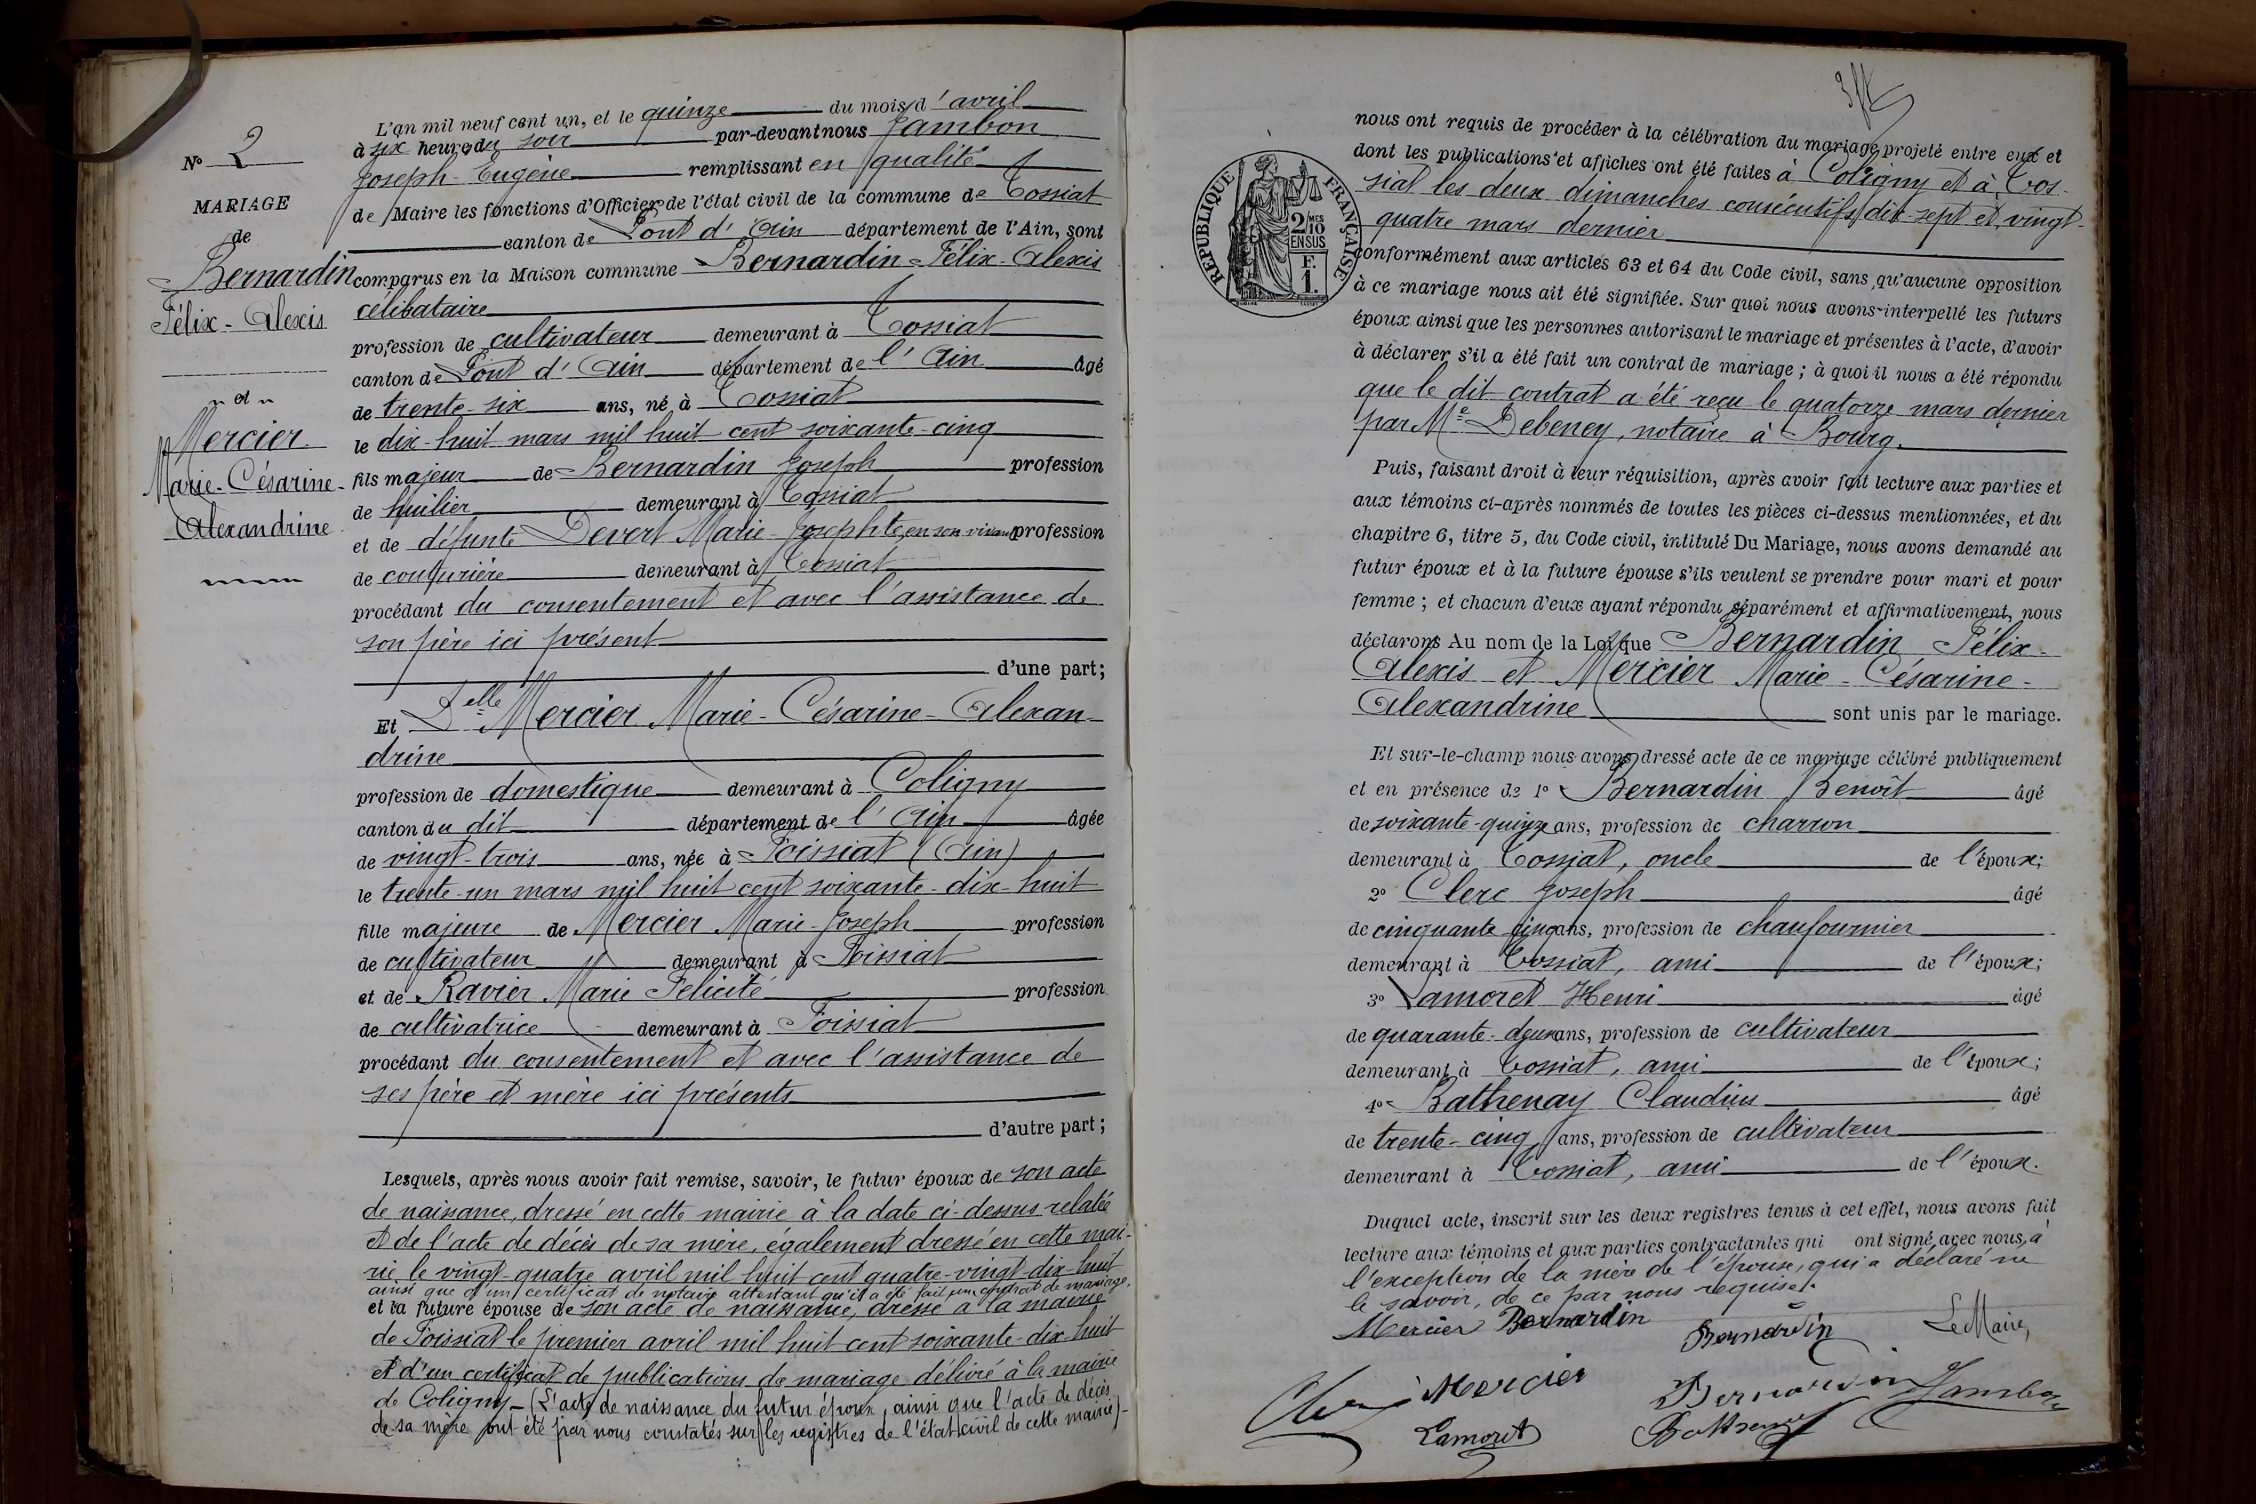 N° 2
MARIAGE
de
Bernardin
Félix - Alexis
et
Mercier
Marie - Césarine -
Alexandrine
L'an mil neuf cent un, et le quinze du mois d'avril
à six heures du soir par-devant nous Jambon
Joseph - Eugène remplissant en qualité
de Maire les fonctions d'Officier de l'état civil de la commune de Tossiat
canton de Pont d'Ain département de l'Ain, sont
comparus en la Maison commune Bernardin - Félix - Alexis
célibataire
profession de cultivateur demeurant à Tossiat
canton de Pont d'Ain département de l'Ain âgé
de trente-six ans, né à Tossiat
le dix-huit mars mil huit cent soixante-cinq
fils majeur de Bernardin Joseph profession
de huilier demeurant à Tossiat
et de défunte Devert Marie-Josephte, en son vivant profession
de couturière demeurant à Tossiat
procédant du consentement et avec l'assistance de
son père ici présent
d'une part;
Et Delle Mercier Marie - Césarine - Alexan-
drine
profession de domestique demeurant à Coligny
canton du dit département de l'Ain âgée
de vingt-trois ans, née à Foissiat (Ain)
le trente-un mars mil huit cent soixante-dix-huit
fille majeure de Mercier Marie-Joseph profession
de cultivateur demeurant à Foissiat
et de Ravier Marie Félicité profession
de cultivatrice demeurant à Foissiat
procédant du consentement et avec l'assistance de
ses père et mère ici présents
d'autre part;
Lesquels, après nous avoir fait remise, savoir, le futur époux de son acte
de naissance, dressé en cette mairie à la date ci-dessus relatée
et de l'acte de décès de sa mère, également dressé en cette mai-
rie le vingt-quatre avril mil huit cent quatre-vingt-dix-huit
ainsi que d'un certificat de notaire attestant qu'il a été fait un contrat de mariage,
et la future épouse de son acte de naissance, dressé à la mairie
de Foissiat le premier avril mil huit cent soixante-dix-huit
et d'un certificat de publications de mariage délivré à la mairie
de Coligny - (L'acte de naissance du futur époux, ainsi que l'acte de décès
de sa mère ont été par nous constatés sur les registres de l'état civil de cette mairie) -
RÉPUBLIQUE FRANÇAISE
2/10 MES
EN SUS
F.
1.
nous ont requis de procéder à la célébration du mariage projeté entre eux et
dont les publications et affiches ont été faites à Coligny et à Tos-
siat les deux dimanches consécutifs dix-sept et vingt-
quatre mars dernier
conformément aux articles 63 et 64 du Code civil, sans qu'aucune opposition
à ce mariage nous ait été signifiée. Sur quoi nous avons interpellé les futurs
époux ainsi que les personnes autorisant le mariage et présentes à l'acte, d'avoir
à déclarer s'il a été fait un contrat de mariage ; à quoi il nous a été répondu
que le dit contrat a été reçu le quatorze mars dernier
par Me Debeney, notaire à Bourg.
Puis, faisant droit à leur réquisition, après avoir fait lecture aux parties et
aux témoins ci-après nommés de toutes les pièces ci-dessus mentionnées, et du
chapitre 6, titre 5, du Code civil, intitulé Du Mariage, nous avons demandé au
futur époux et à la future épouse s'ils veulent se prendre pour mari et pour
femme ; et chacun d'eux ayant répondu séparément et affirmativement, nous
déclarons Au nom de la Loi que Bernardin Félix-
Alexis et Mercier Marie - Césarine -
Alexandrine sont unis par le mariage.
Et sur-le-champ nous avons dressé acte de ce mariage célébré publiquement
et en présence de 1° Bernardin Benoît âgé
de soixante-quinze ans, profession de charron
demeurant à Tossiat, oncle de l'époux;
2° Clerc Joseph âgé
de cinquante-cinq ans, profession de chaufournier
demeurant à Tossiat, ami de l'époux;
3° Lamoret Henri âgé
de quarante-deux ans, profession de cultivateur
demeurant à Tossiat, ami de l'époux;
4° Bathenay Claudius âgé
de trente-cinq ans, profession de cultivateur
demeurant à Tossiat, ami de l'époux.
Duquel acte, inscrit sur les deux registres tenus à cet effet, nous avons fait
lecture aux témoins et aux parties contractantes qui ont signé avec nous, à
l'exception de la mère de l'épouse, qui a déclaré ne
le savoir, de ce par nous requise.
Mercier Bernardin Bernardin Le Maire,
Clerc Mercier Bernardin Jambon
Lamoret Bathenay